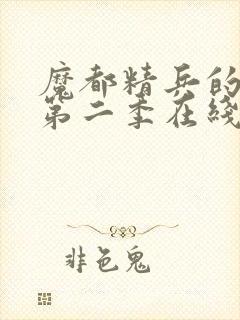 魔都精兵的
第二季在线
非色鬼